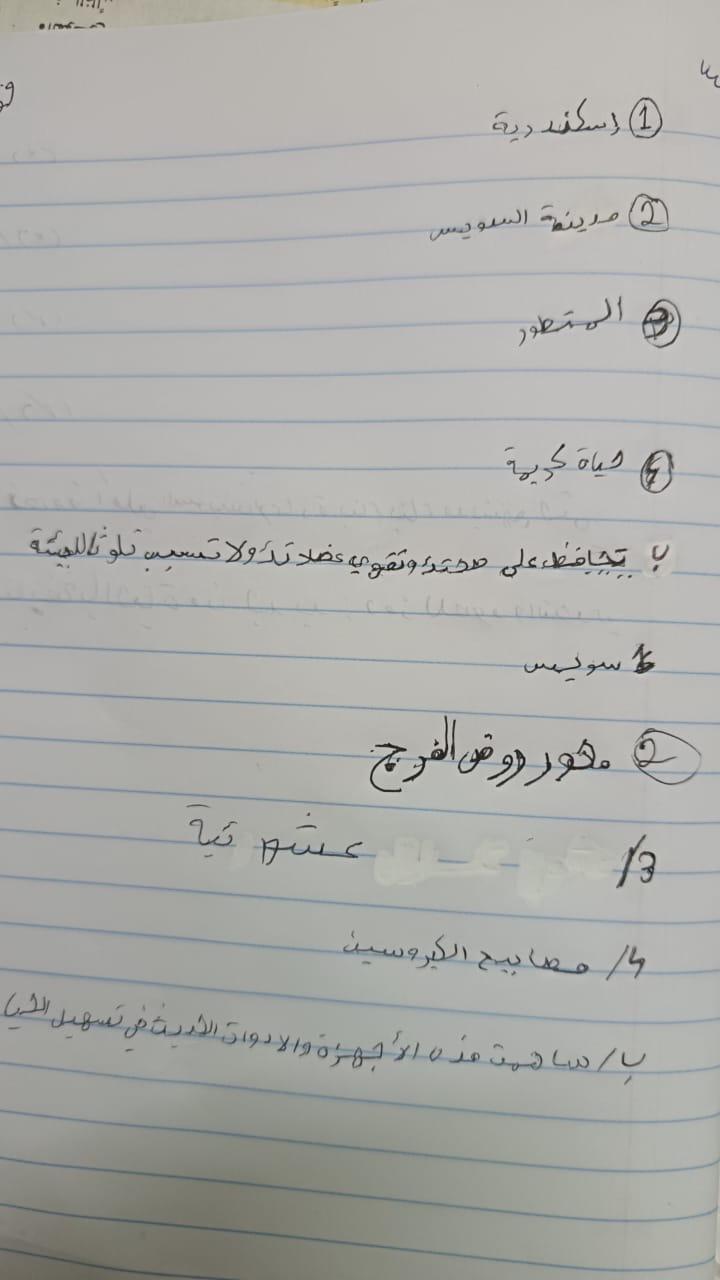 ① إسكندرية
② مدينة السويس
③ المتطور
④ حياة كريمة
ب تحافظ على صحتك وتقوي عضلاتك ولا تسبب تلوثا للبيئة
1 سويس
② محور روض الفرج
3/
4/ مصابيح الكيروسين
ب/ ساهمت هذه الأجهزة والادوات الحديثة في تسهيل الحيا